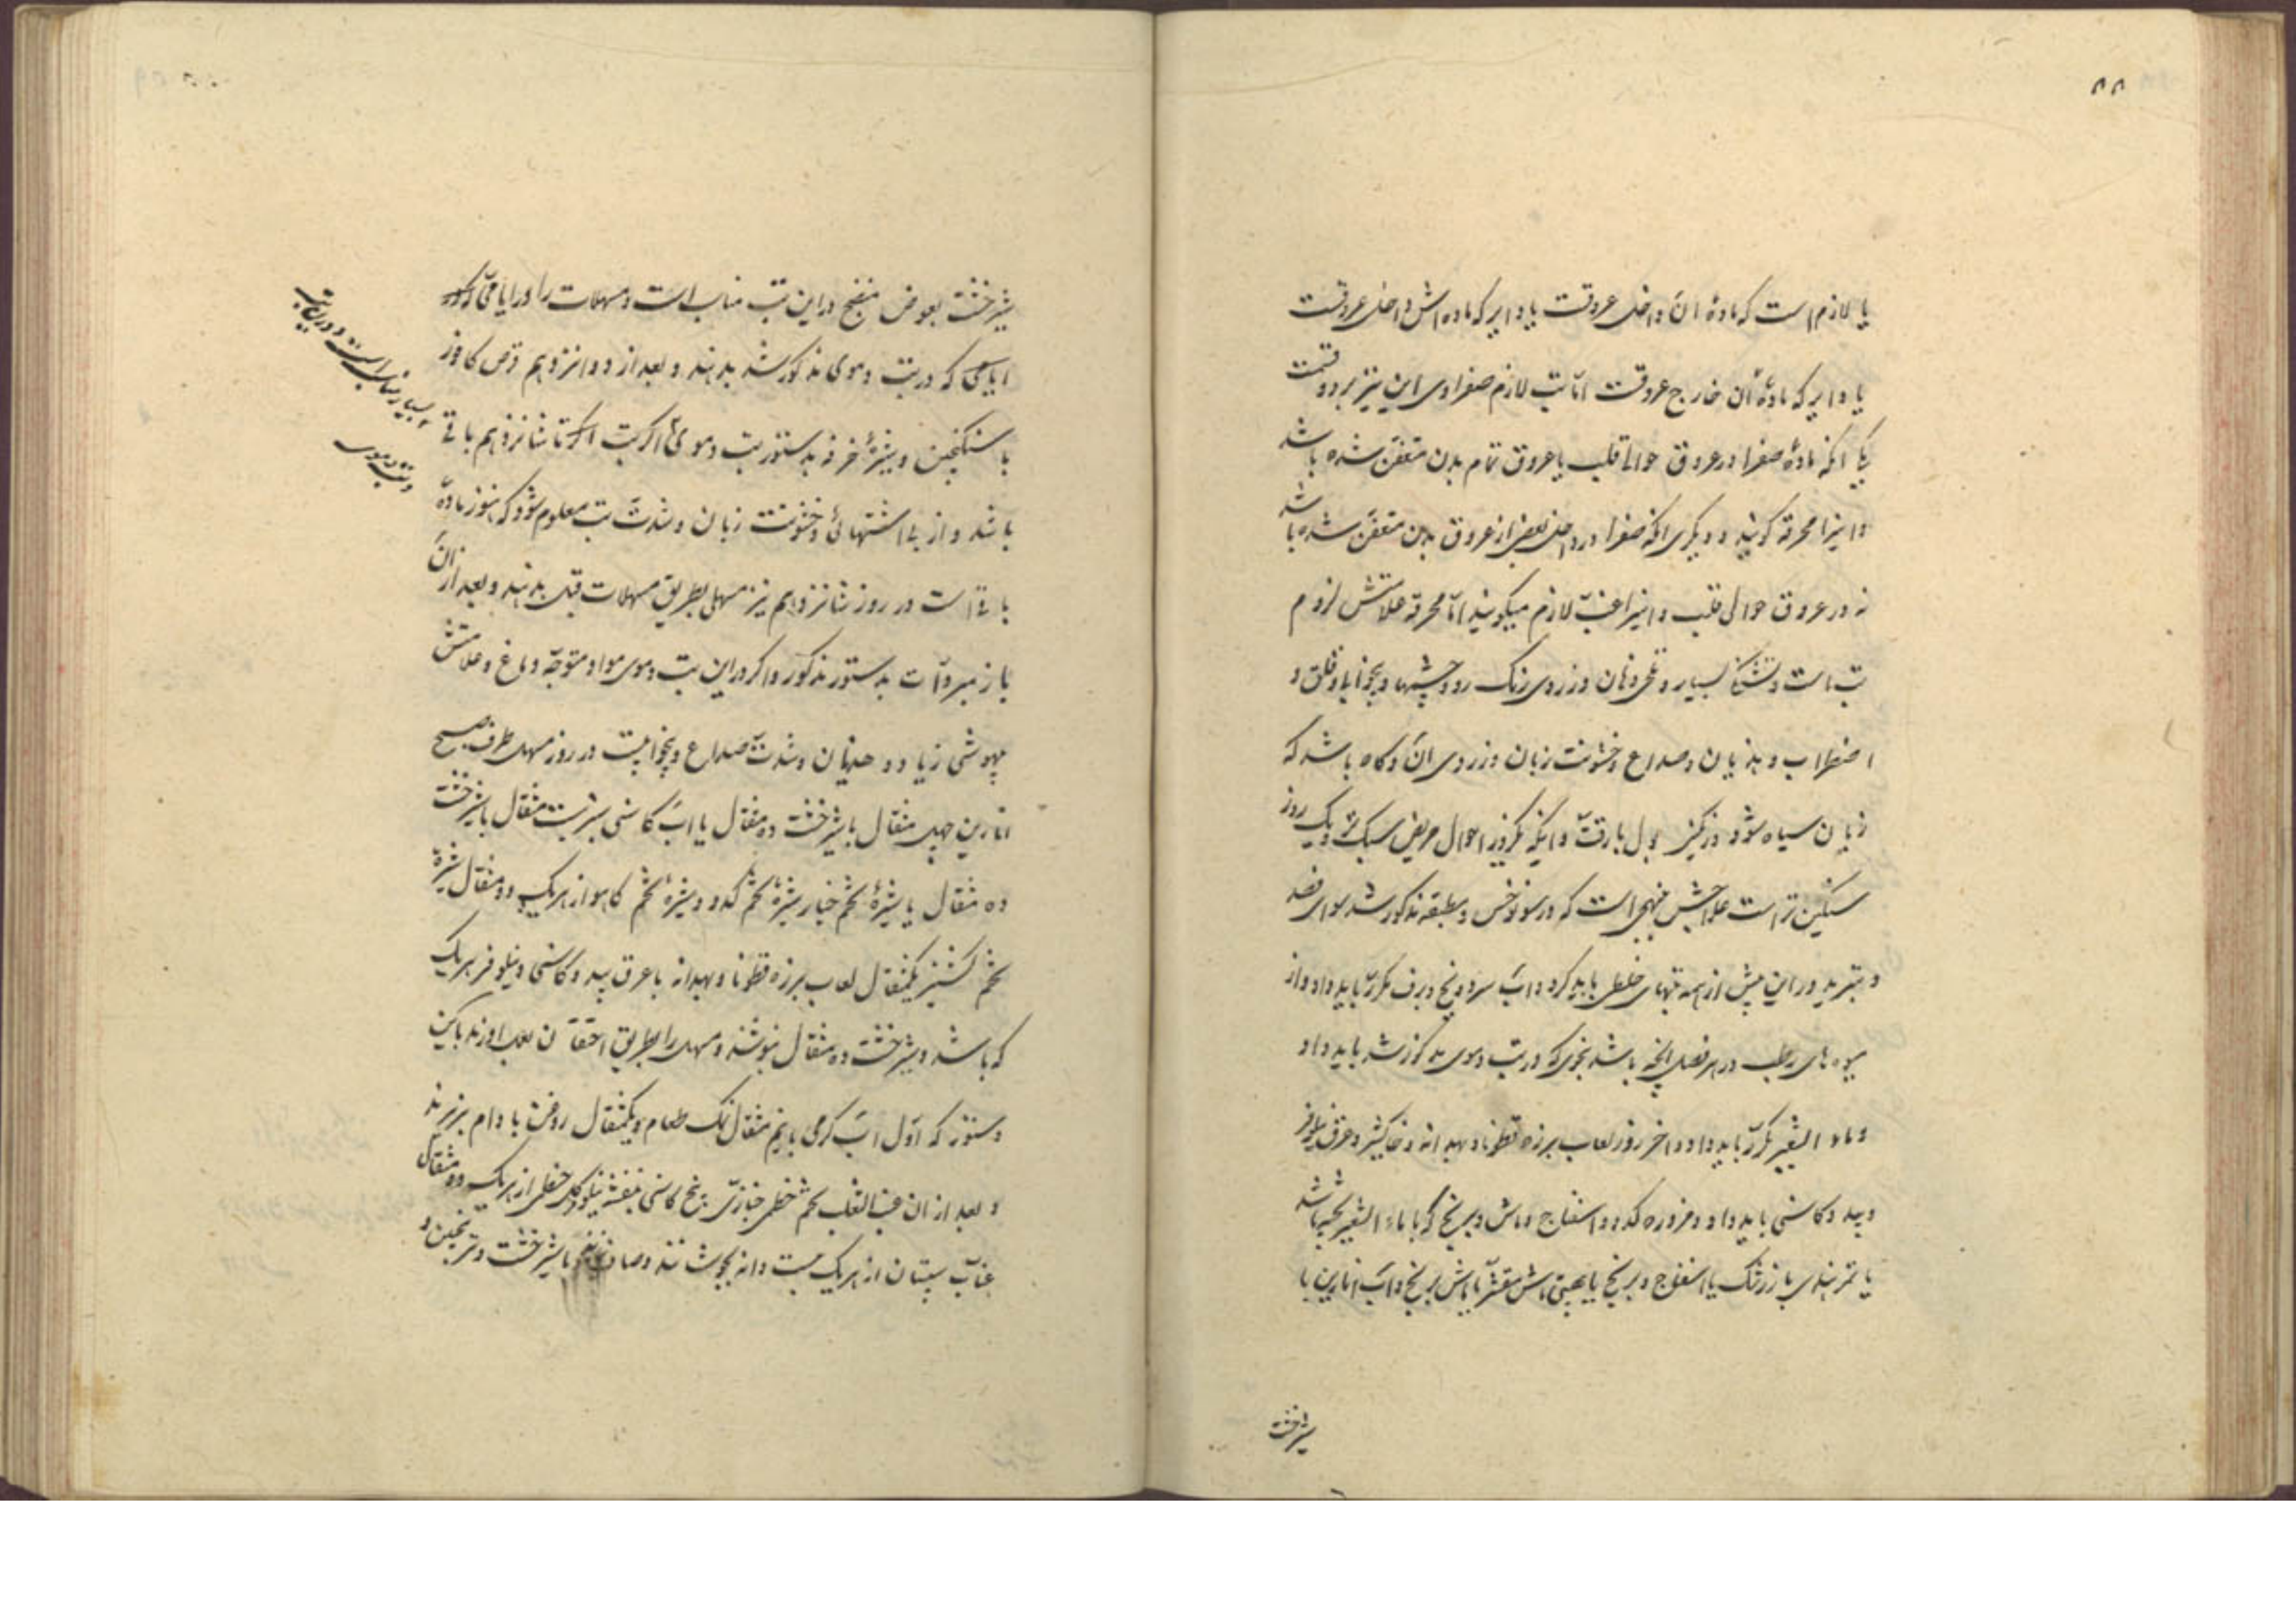 ۸۸
یا لازم است که مادهٔ آن داخل عروقست یا دایر که ماده‌اش داخل عروقست
یا دایر که مادهٔ آن خارج عروقست اما تب لازم صفراوی این نیز بر دو قسمت
یکی آنکه مادهٔ صفرا در عروق حوالی قلب یا عروق تمام بدن متعفن شده باشد
و اینرا محرقه گویند و دیگری آنکه صفرا در داخل بعضی از عروق بدن متعفن شده باشد
نه در عروق حوالی قلب و اینرا غب لازم میگویند اما محرقه علامتش لزوم
تب است و تشنگی بسیار و تلخی دهان و زردی رنگ رو و چشمها و بیخوابی و قلق و
اضطراب و هذیان و صداع و خشونت زبان و زردی آن و گاه باشد که
زبان سیاه شود و رنگینی بول با رقت و اینکه یکروز احوال مریض سبک‌تر و یک روز
سنگین‌تر است علاجش نهجی است که در سونوخس و مطبقه مذکور شد سوای فصد
و تبرید در این بیش از همه تبهای خلطی باید کرد و آب سرد و یخ و برف مکرر باید داد و از
میوه‌های رطب در هر فصل آنچه باشد بنحوی که در تب دموی مذکور شد باید داد
و ماء الشعیر مکرر باید داد و آخر روز لعاب برزه قطونا و بهدانه و خاکشیر و عرق نیلوفر
و بید و کاسنی باید داد و مزوره کدو و اسفناج و ماش و برنج که با ماء الشعیر پخته باشد
یا تمر هندی یا زرشک یا اسفناج و برنج یا ماش مقشر یا ماش برنج و آب انارین با
شیرخشت
شیرخشت بعوض منضج در این تب مناسب است و مسهلات را در ایامی
ایامی که در تب دموی مذکور شد بدهند و بعد از دوانزدهم قرص کافور
با سکنجبین و شیرهٔ خرفه بدستور تب دموی اگر تب تا شانزدهم باقی
باشد و از بی‌اشتهائی و خشونت زبان و شدت تب معلوم شود که هنوز ماده
باقی است در روز شانزدهم نیز مسهلی بطریق مسهلات قبل بدهند و بعد از آن
باز مبردات بدستور مذکور و اگر در این تب دموی مواد متوجه دماغ و علامتش
بیهوشی زیاد و هذیان و شدت صداع و بیخوابیست در روز مسهل طرف صبح
انارین چهل مثقال با شیرخشت ده مثقال یا آب کاسنی بیست مثقال با شیرخشت
ده مثقال یا شیرهٔ تخم خیار شیرهٔ تخم کدو و شیرهٔ تخم کاهو از هریک دو مثقال شیرهٔ
تخم گشنیز یکمثقال لعاب برزه قطونا و بهدانه با عرق بید و کاسنی و نیلوفر هریک
که باشد و شیرخشت ده مثقال بنوشند و مسهل را بطریق احتقان بعمل آورند باین
دستور که اول آب گرمی با نیم مثقال نمک طعام و یکمثقال روغن بادام بریزند
و بعد از آن عنب الثعلب تخم خطمی خبازی بیخ کاسنی بنفشه نیلوفر گل خطمی از هریک دو مثقال
عناب سپستان از هریک بیست دانه بجوشانند و صاف نموده با شیرخشت و ترنجبین و
بسیار مناسب است و در این تب
و تب دموی